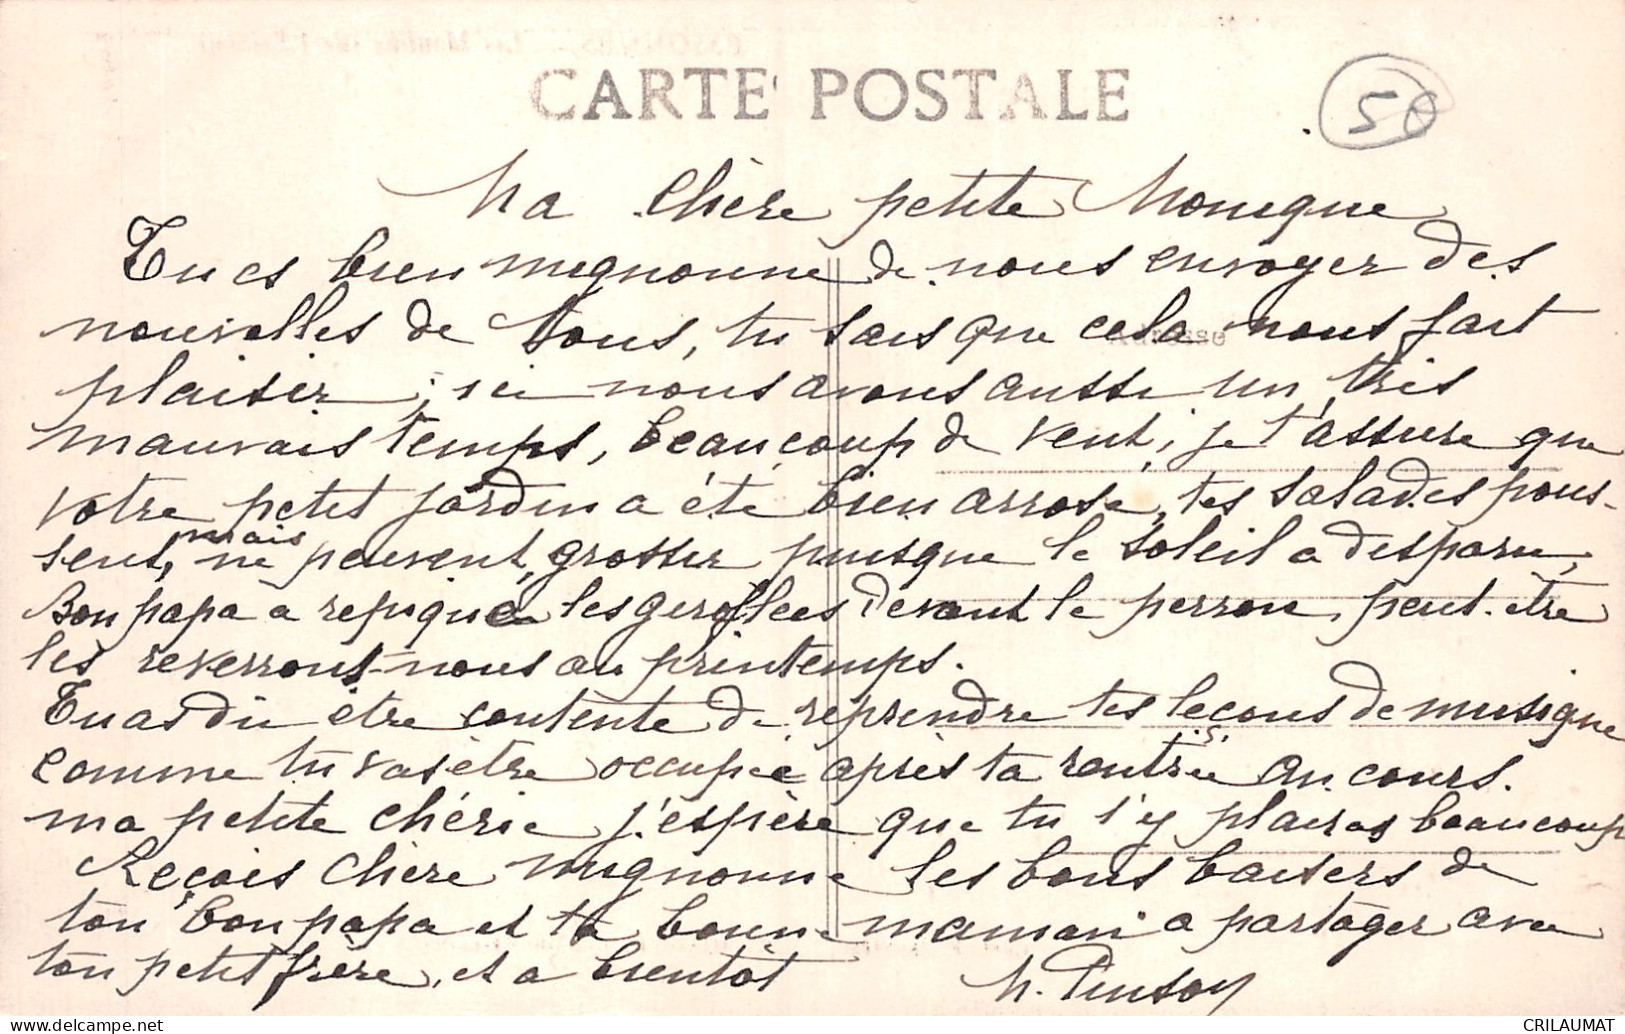 CARTE POSTALE
50
Ma chère petite Monique
Tu es bien mignonne de nous envoyer des
nouvelles de tous, tu sais que cela nous fait
Adresse
plaisir, ici nous avons aussi un très
mauvais temps, beaucoup de vent, je t'assure que
votre petit jardin a été bien arrosé, tes salades pous-
sent, mais ne peuvent grossir puisque le soleil a disparu,
Bon papa a repiqué les giroflées devant le perron, peut-être
les reverrons-nous au printemps.
Tu as dû être contente de reprendre tes leçons de musique
comme tu vas être occupée après ta rentrée au cours.
ma petite chérie j'espère que tu t'y plairas beaucoup
Reçois chère mignonne les bons baisers de
ton bon papa et ta bonne maman a partager avec
ton petit frère, et a bientôt
CRILAUMAT